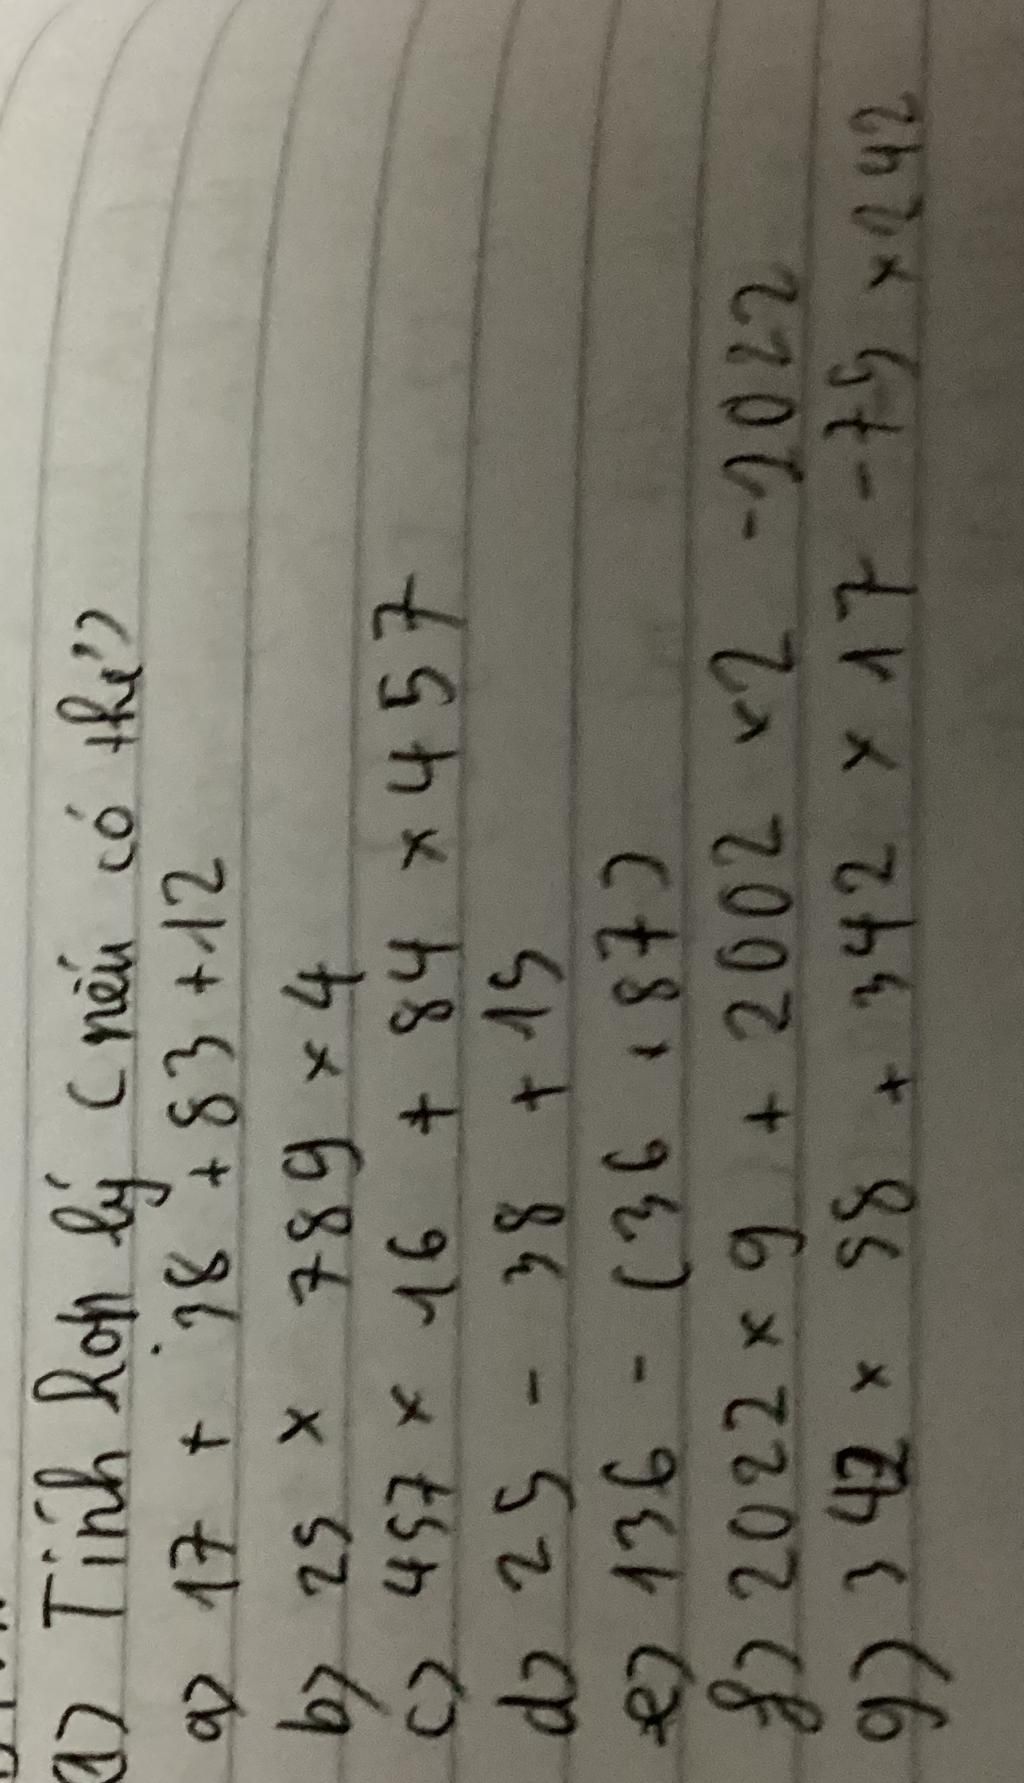 1) Tính hợp lý (nếu có thể)
a) 17 + 38 + 83 + 12
b) 25 x 789 x 4
c) 457 x 16 + 84 x 457
d) 25 - 38 + 15
e) 136 - (36 + 87)
f) 2022 x 9 + 2002 x 2 - 2022
g) 342 x 58 + 342 x 17 - 75 x 242